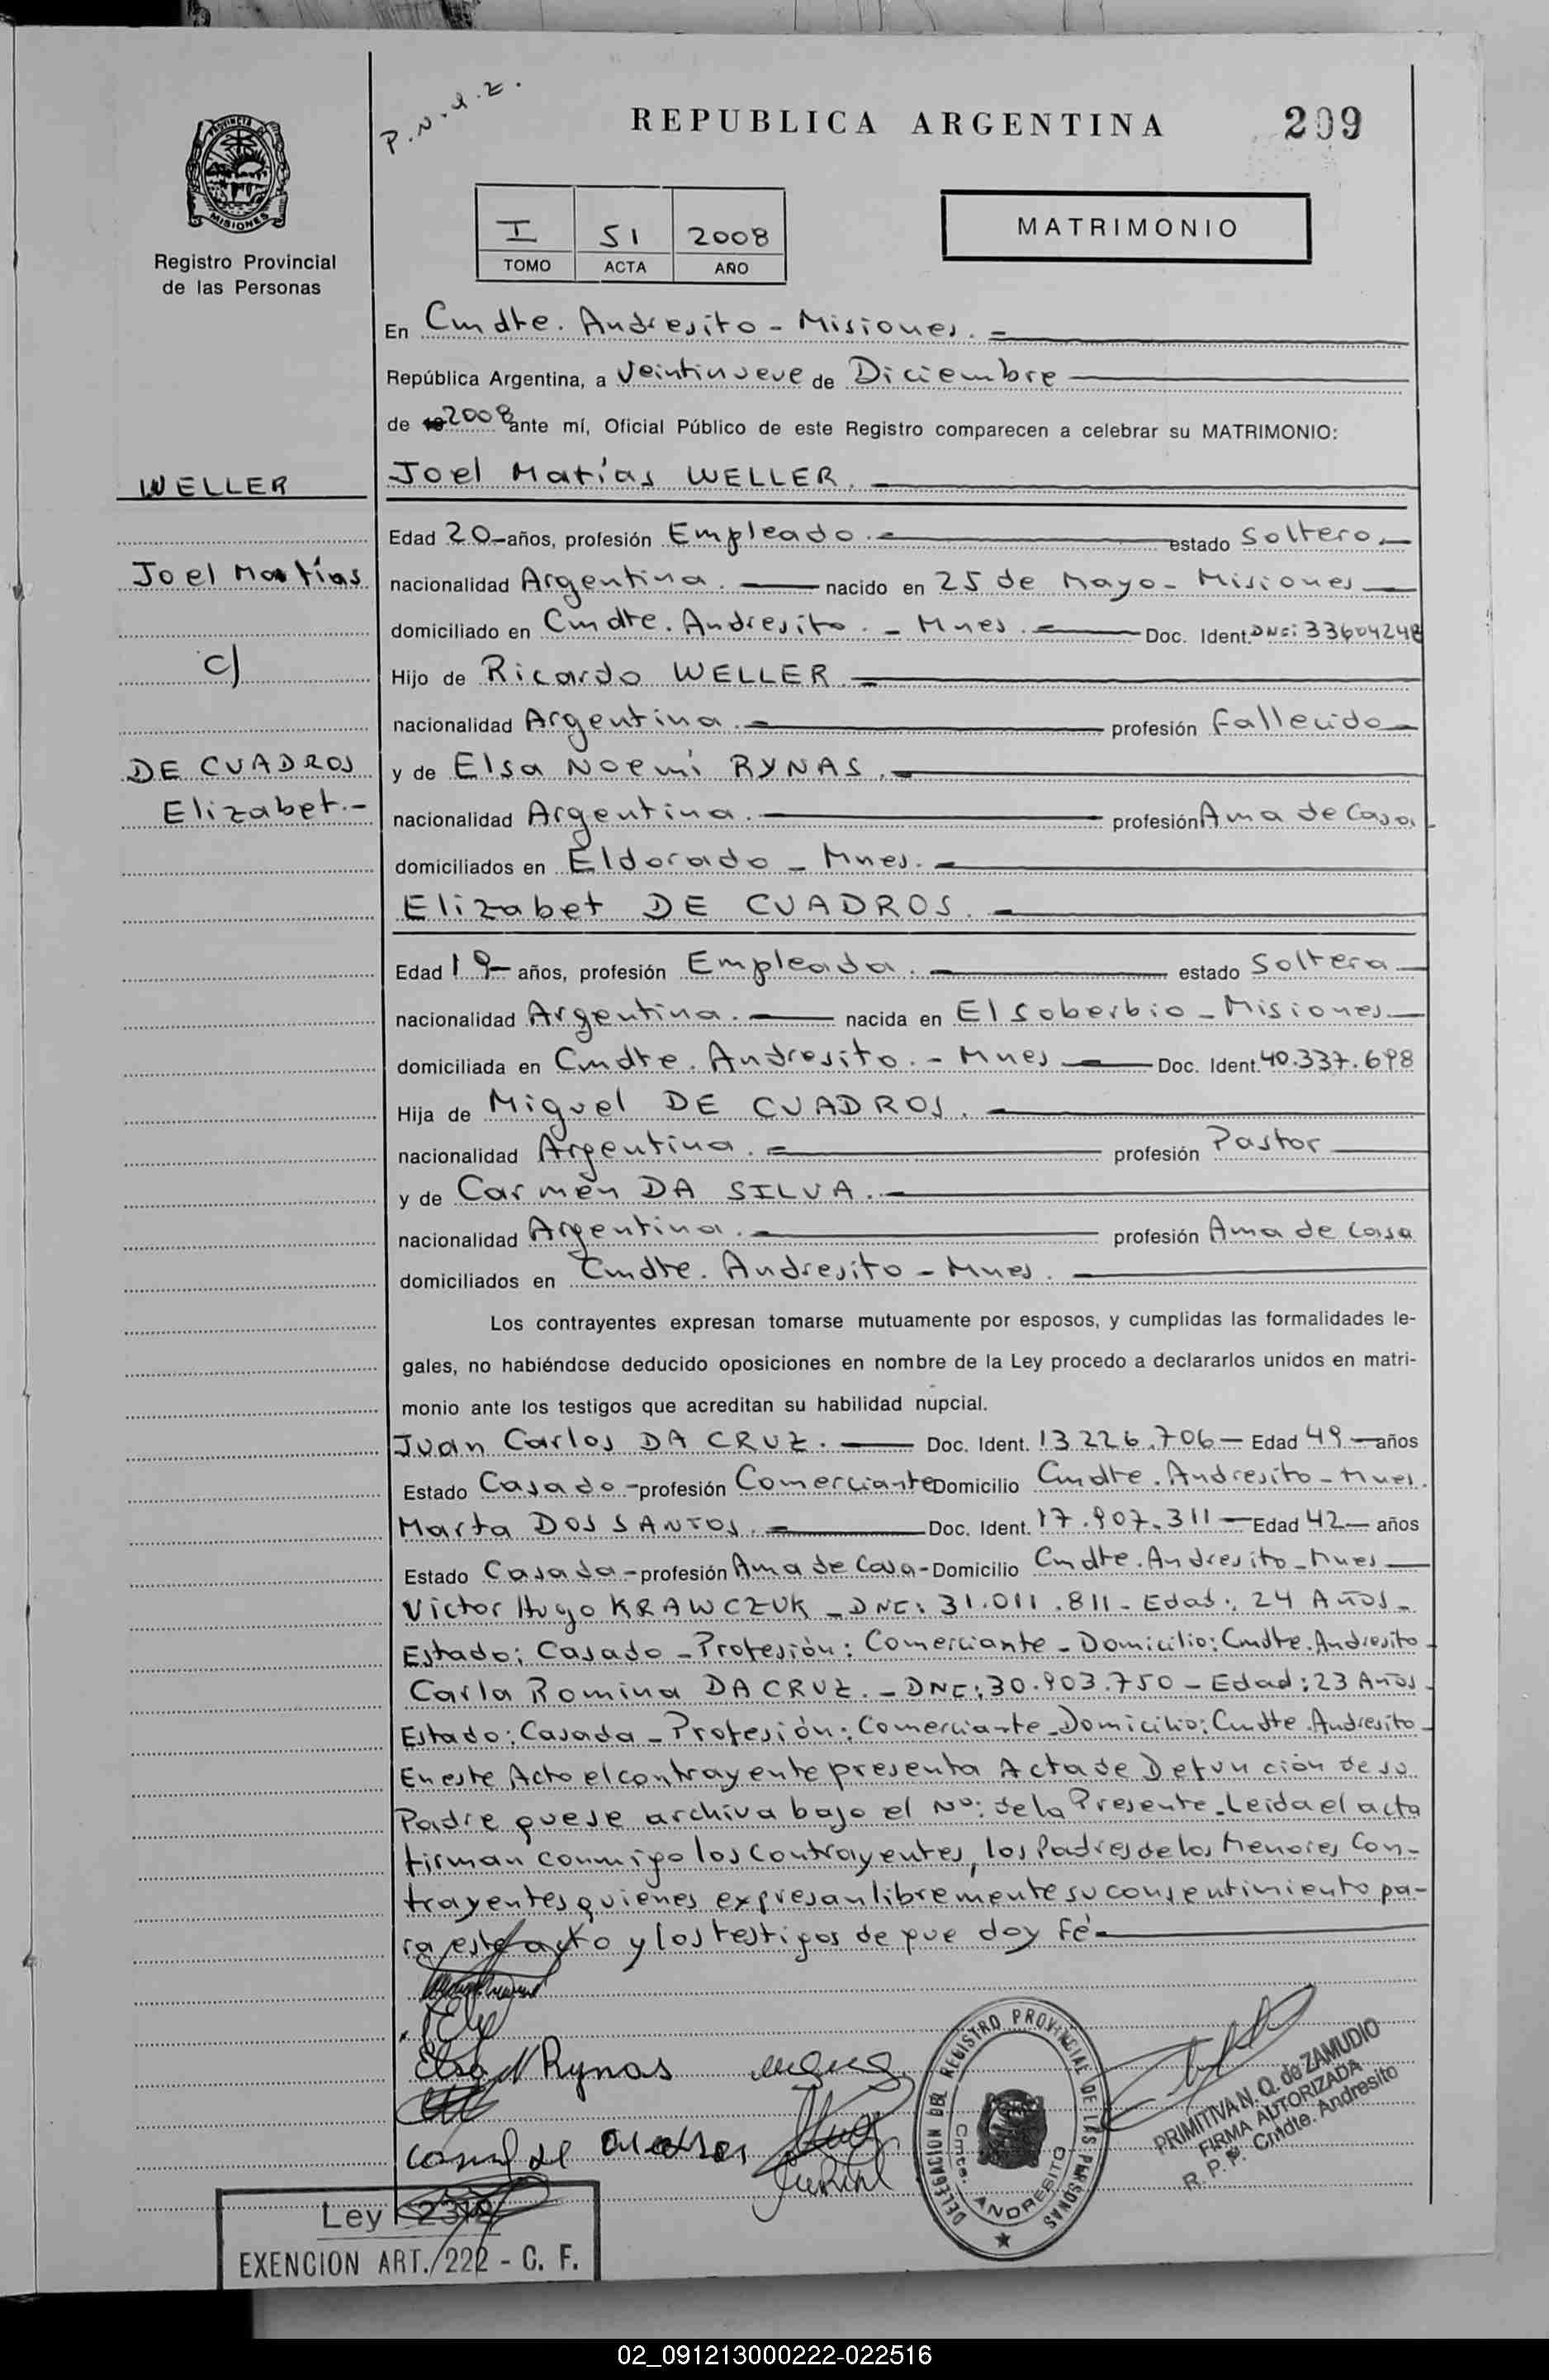 P.N.Q.Z.
REPUBLICA ARGENTINA
209
PROVINCIA DE
MISIONES
Registro Provincial
de las Personas
I 51 2008
TOMO ACTA AÑO
MATRIMONIO
En Cmdte. Andresito - Misiones.-
República Argentina, a Veintinueve de Diciembre
de 19 2008 ante mí, Oficial Público de este Registro comparecen a celebrar su MATRIMONIO:
WELLER
Joel Matías
c/
DE CUADROS
Elizabet.-
Joel Matías WELLER.-
Edad 20-años, profesión Empleado.- estado Soltero.-
nacionalidad Argentina.- nacido en 25 de Mayo - Misiones-
domiciliado en Cmdte. Andresito.- Mnes.- Doc. Ident. DNI: 33604248
Hijo de Ricardo WELLER.-
nacionalidad Argentina.- profesión Fallecido-
y de Elsa Noemí RYNAS.-
nacionalidad Argentina.- profesión Ama de Casa
domiciliados en Eldorado - Mnes.-
Elizabet DE CUADROS.-
Edad 19- años, profesión Empleada.- estado Soltera-
nacionalidad Argentina.- nacida en El Soberbio - Misiones-
domiciliada en Cmdte. Andresito.- Mnes- Doc. Ident. 40.337.698
Hija de Miguel DE CUADROS.-
nacionalidad Argentina.- profesión Pastor-
y de Carmen DA SILVA.-
nacionalidad Argentina.- profesión Ama de Casa
domiciliados en Cmdte. Andresito - Mnes.-
Los contrayentes expresan tomarse mutuamente por esposos, y cumplidas las formalidades le-
gales, no habiéndose deducido oposiciones en nombre de la Ley procedo a declararlos unidos en matri-
monio ante los testigos que acreditan su habilidad nupcial.
Juan Carlos DA CRUZ.- Doc. Ident. 13.226.706- Edad 49-años
Estado Casado-profesión Comerciante Domicilio Cmdte. Andresito - Mnes.
Marta DOS SANTOS.- Doc. Ident. 17.907.311-Edad 42- años
Estado Casada-profesión Ama de Casa-Domicilio Cmdte. Andresito - Mnes-
Victor Hugo KRAWCZUK - DNI: 31.011.811- Edad: 24 Años-
Estado: Casado - Profesión: Comerciante - Domicilio: Cmdte. Andresito-
Carla Romina DA CRUZ.- DNI: 30.903.750 - Edad: 23 Años-
Estado: Casada - Profesión: Comerciante - Domicilio: Cmdte. Andresito-
En este Acto el contrayente presenta Acta de Defunción de su
Padre que se archiva bajo el Nº: de la Presente. Leida el acta
firman conmigo los contrayentes, los Padres de los Menores Con-
trayentes quienes expresan libremente su consentimiento pa-
ra este acto y los testigos de que doy Fé-
Elsa N Rynas
DELEGACION DEL REGISTRO PROVINCIAL DE LAS PERSONAS
Cmte. ANDRESITO
PRIMITIVA N. Q. de ZAMUDIO
FIRMA AUTORIZADA
R. P. P. Cmdte. Andresito
Ley
EXENCION ART. 222 - C. F.
02_091213000222-022516